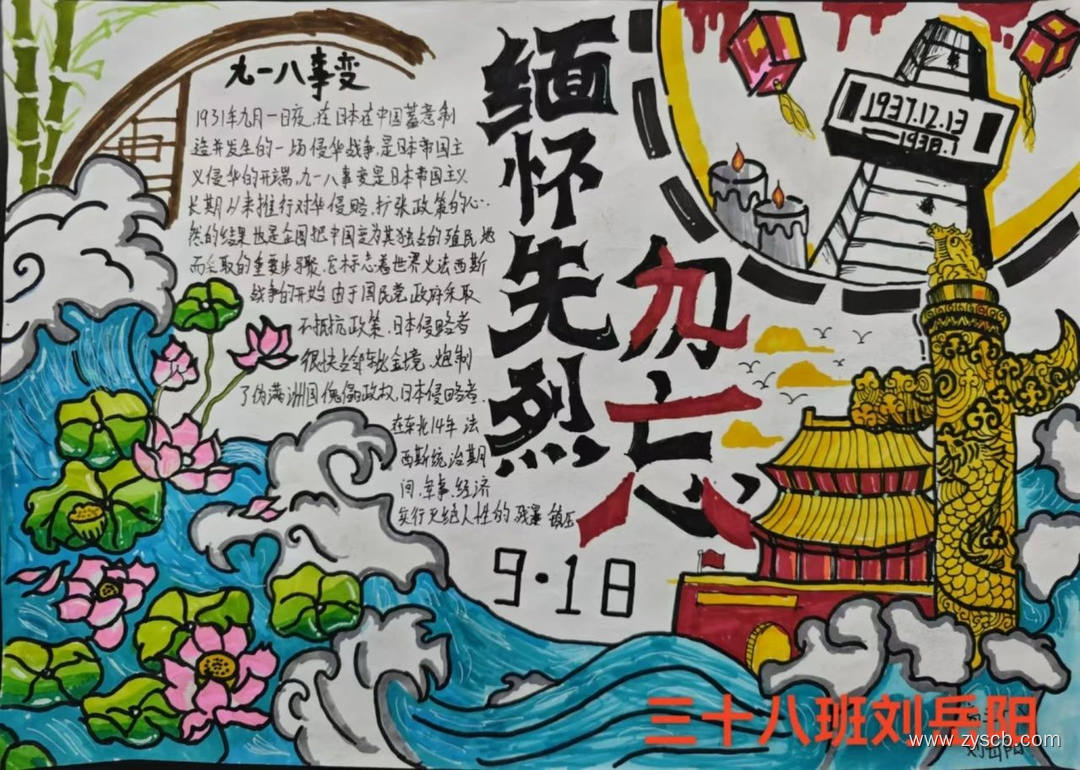 九一八事变
1931年九月一日夜,在日本在中国蓄意制
造并发生的一场侵华战争,是日本帝国主
义侵华的开端。九一八事变是日本帝国主义
长期以来推行对华侵略、扩张政策的必
然的结果也是企图把中国定为其独占的殖民地
而采取的重要步骤。它标志着世界火法西斯
战争的开始 由于国民党政府采取
不抵抗政策,日本侵略者
很快占领东北全境,炮制
了伪满洲国傀儡政权,日本侵略者
在东北14年 法
西斯统治期
间,军事、经济
实行灭绝人性的 残暴 镇压
缅怀先烈
勿忘
九一八
9·18
1937.12.13
1938.1
三十八班刘岳阳
www.zyscb.com